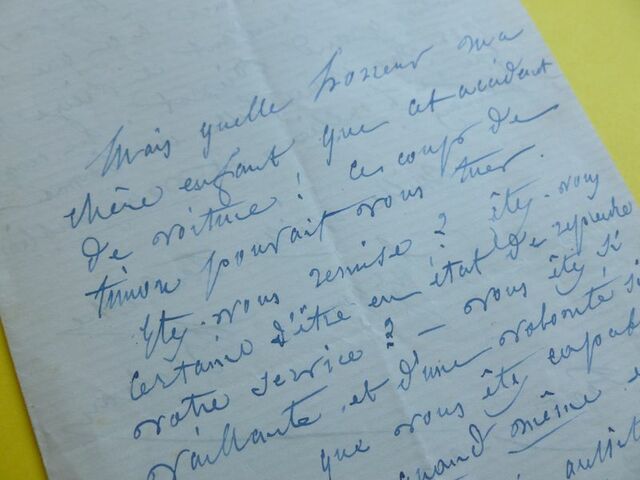 Mais quelle horreur ma
chère enfant que cet accident
de voiture ! ces coups de
timon pouvait vous tuer.
Etes-vous remise ? êtes-vous
certaine d'être en état de reprendre
votre service ? — vous êtes si
vaillante et d'une volonté si
que vous êtes capable
quand même
aussit